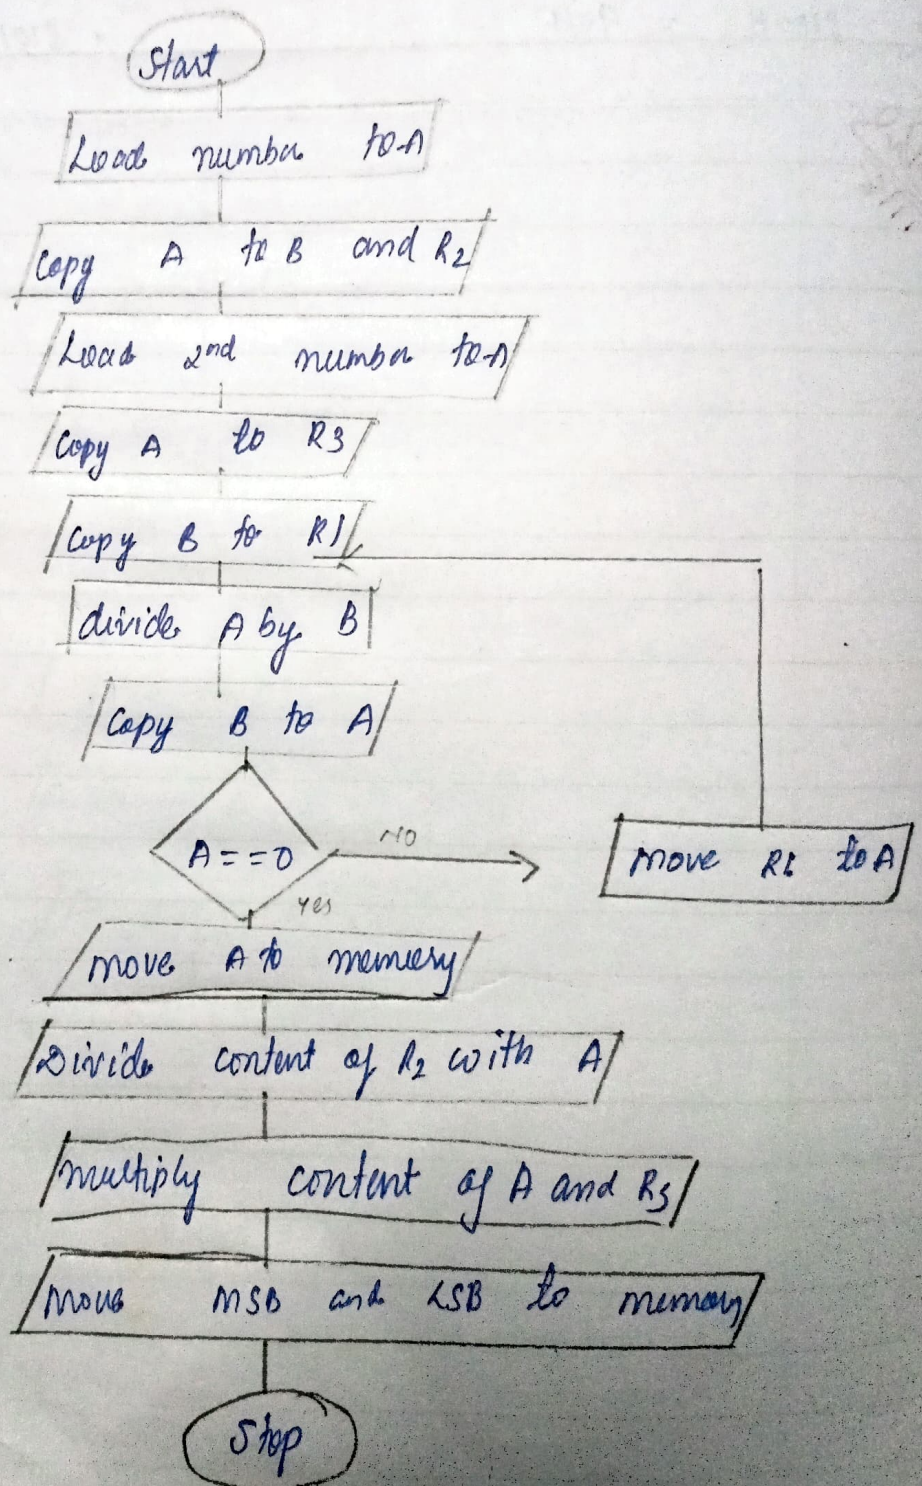 Start
Load number to A
Copy A to B and R2
Load 2nd number to A
Copy A to R3
Copy B to R1
divide A by B
Copy B to A
A==0
NO
Move R1 to A
Yes
Move A to memory
Divide content of R2 with A
Multiply content of A and R3
Move MSB and LSB to memory
Stop